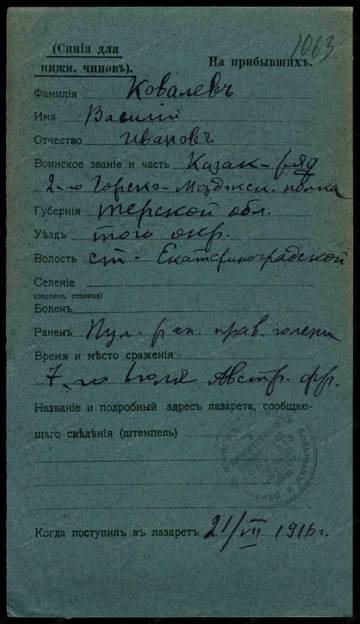 1063
(Синія для нижн. чиновъ).
На прибывшихъ.
Фамилія Ковалевъ
Имя Василій
Отчество Ивановъ
Воинское званіе и часть Казак-ряд
2-го Горско-Моздокск. полка
Губернія Терской обл.
Уѣздъ того окр.
Волость ст. Екатериноградской
Селеніе
(деревня, станица)
Боленъ
Раненъ Пул. ран. прав. голени
Время и мѣсто сраженія
7-го Іюля Австр. фр.
Названіе и подробный адресъ лазарета, сообщаю-
щаго свѣдѣнія (штемпель)
Когда поступилъ въ лазаретъ 21/VII 1916 г.